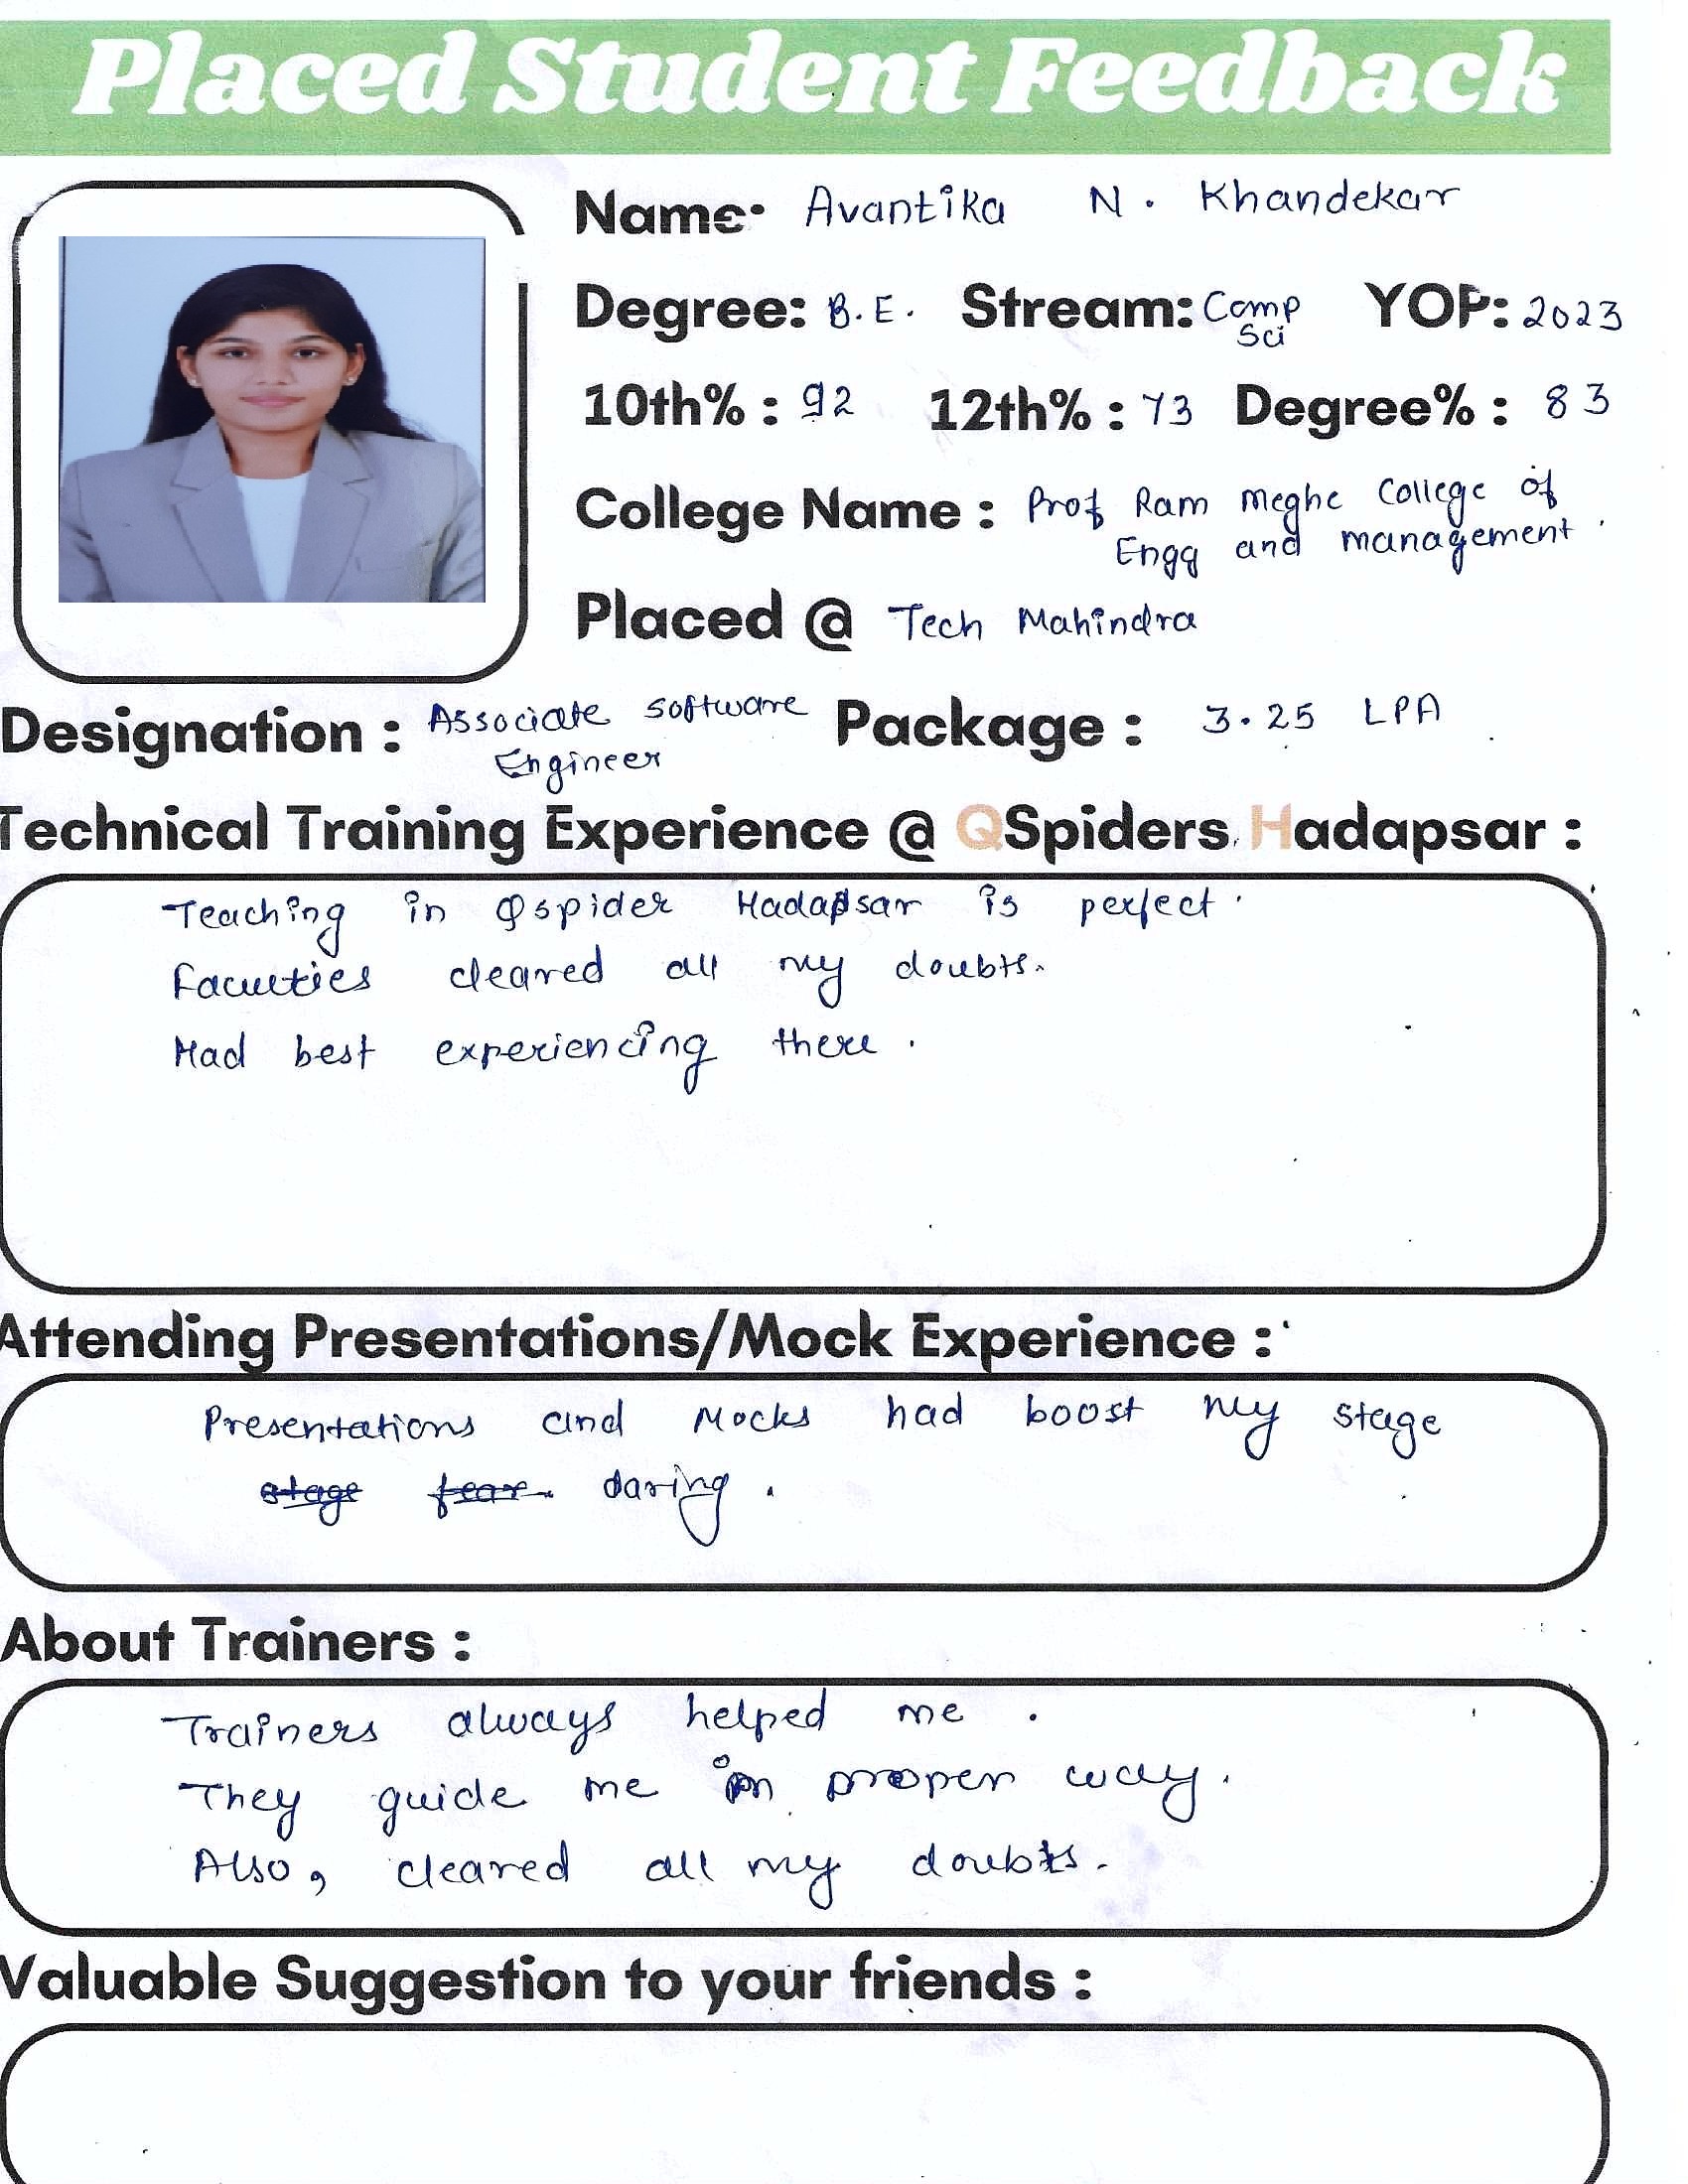 Placed Student Feedback
Name: Avantika N. Khandekar
Degree: B.E. Stream: Comp Sci YOP: 2023
10th% : 92 12th% : 73 Degree% : 83
College Name : Prof Ram Meghe College of
Engg and management.
Placed @ Tech Mahindra
Designation : Associate software Package : 3.25 LPA
Engineer
Technical Training Experience @ QSpiders Hadapsar :
Teaching in Qspider Hadapsar is perfect.
Faculties cleared all my doubts.
Had best experiencing there.
Attending Presentations/Mock Experience :
Presentations and Mocks had boost my stage
stage fear daring.
About Trainers :
Trainers always helped me.
They guide me in proper way.
Also, cleared all my doubts.
Valuable Suggestion to your friends :